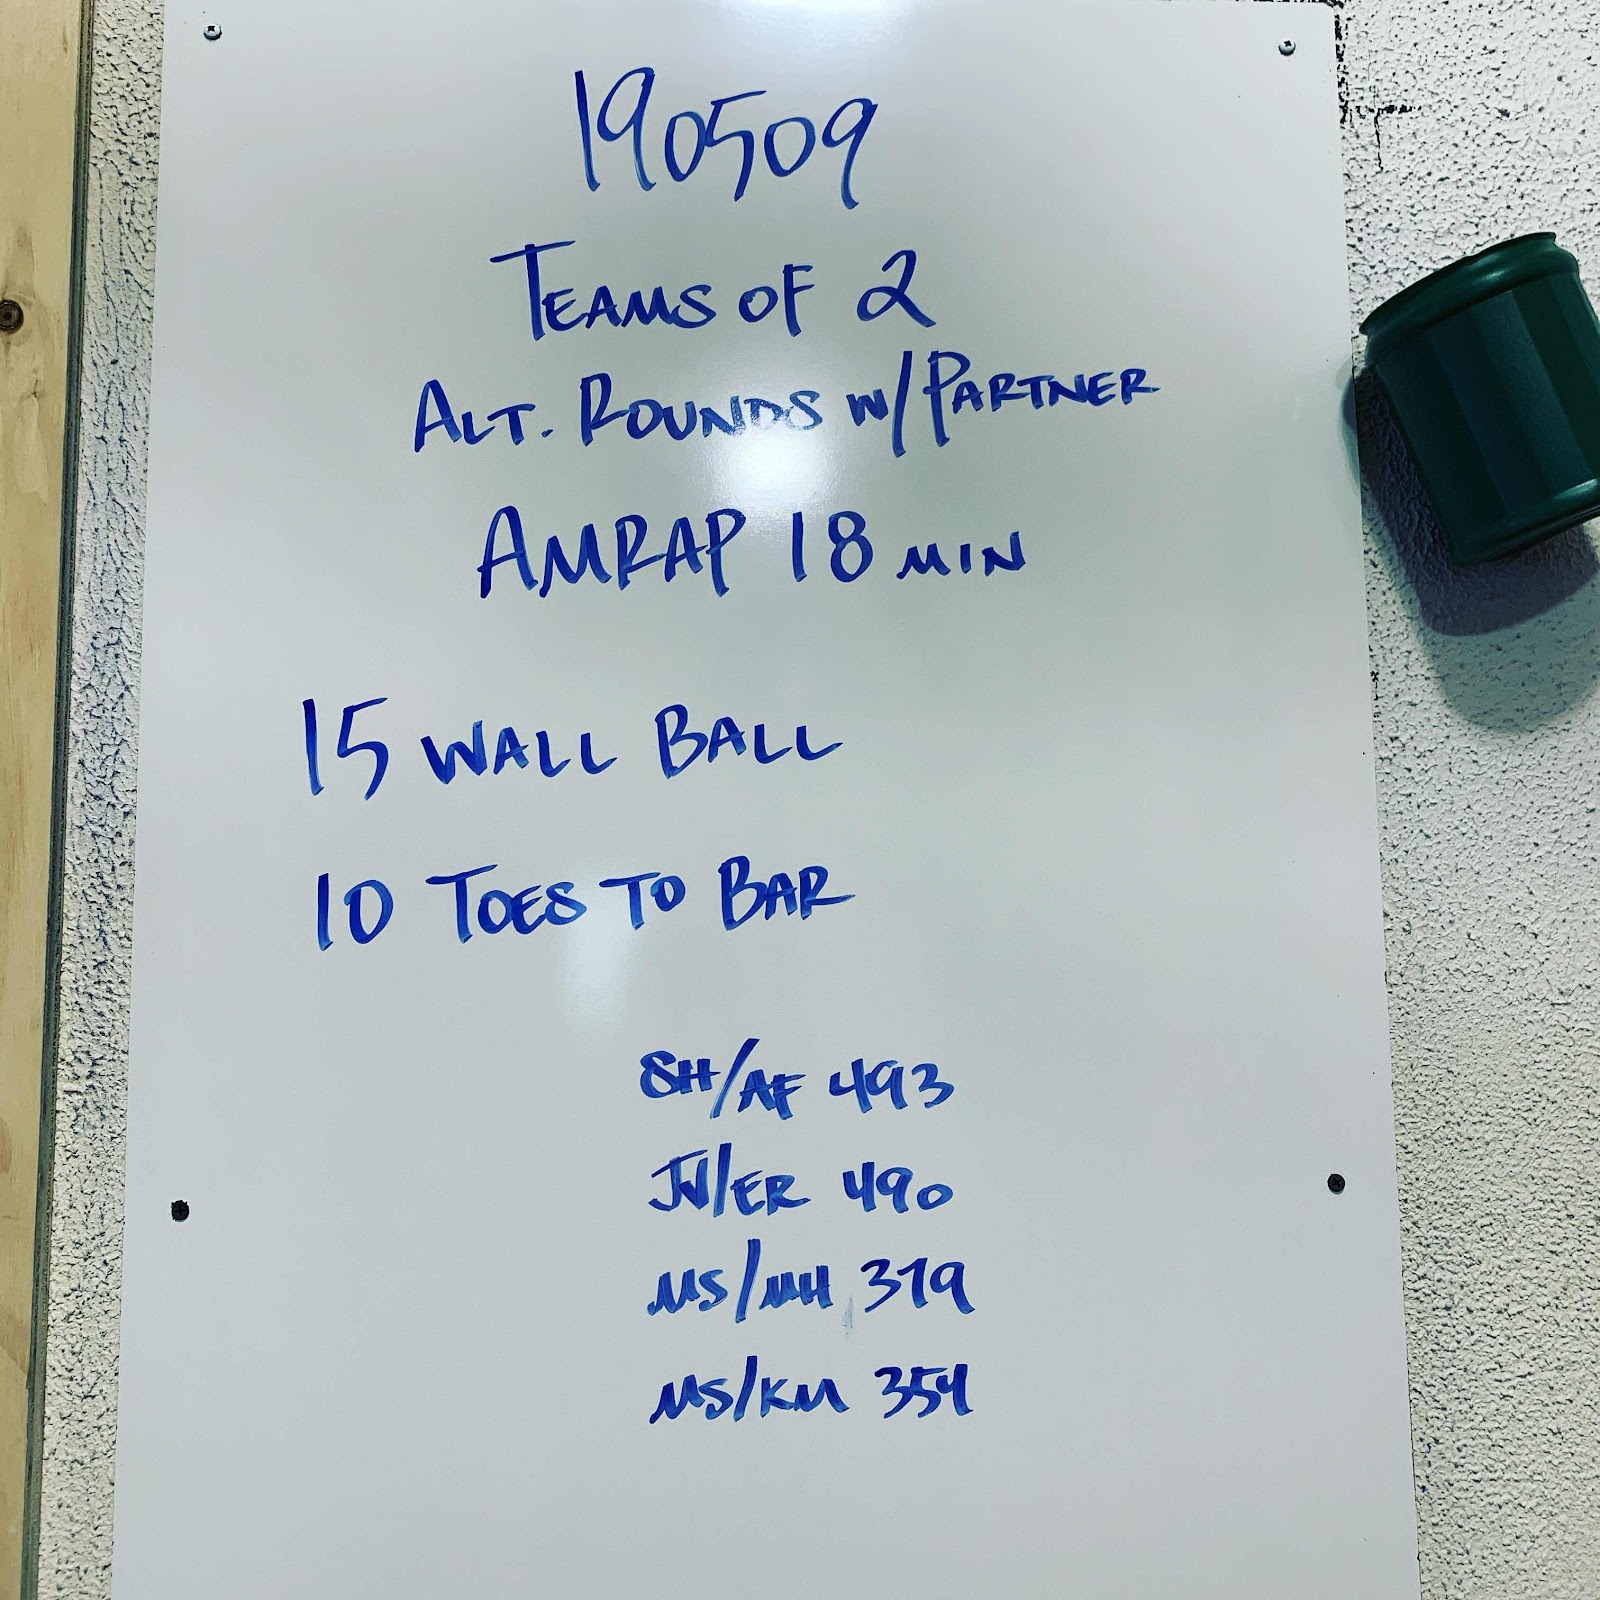 190509
TEAMS OF 2
ALT. ROUNDS W/PARTNER
AMRAP 18 MIN
15 WALL BALL
10 TOES TO BAR
SH/AF 493
JV/ER 490
MS/MH 379
MS/KM 354